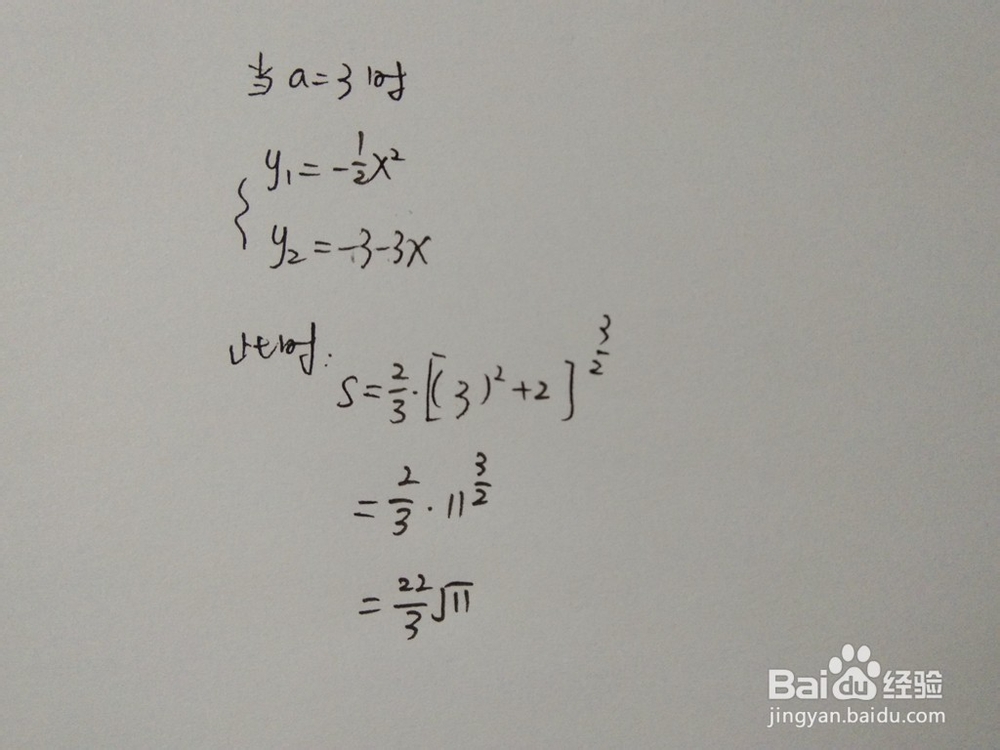 当 a=3 时
y₁=-½x²
y₂=-3-3x
此时:
S=2/3·[(3)²+2]^(3/2)
=2/3·11^(3/2)
=22/3√11
Baidu 经验
jingyan.baidu.com